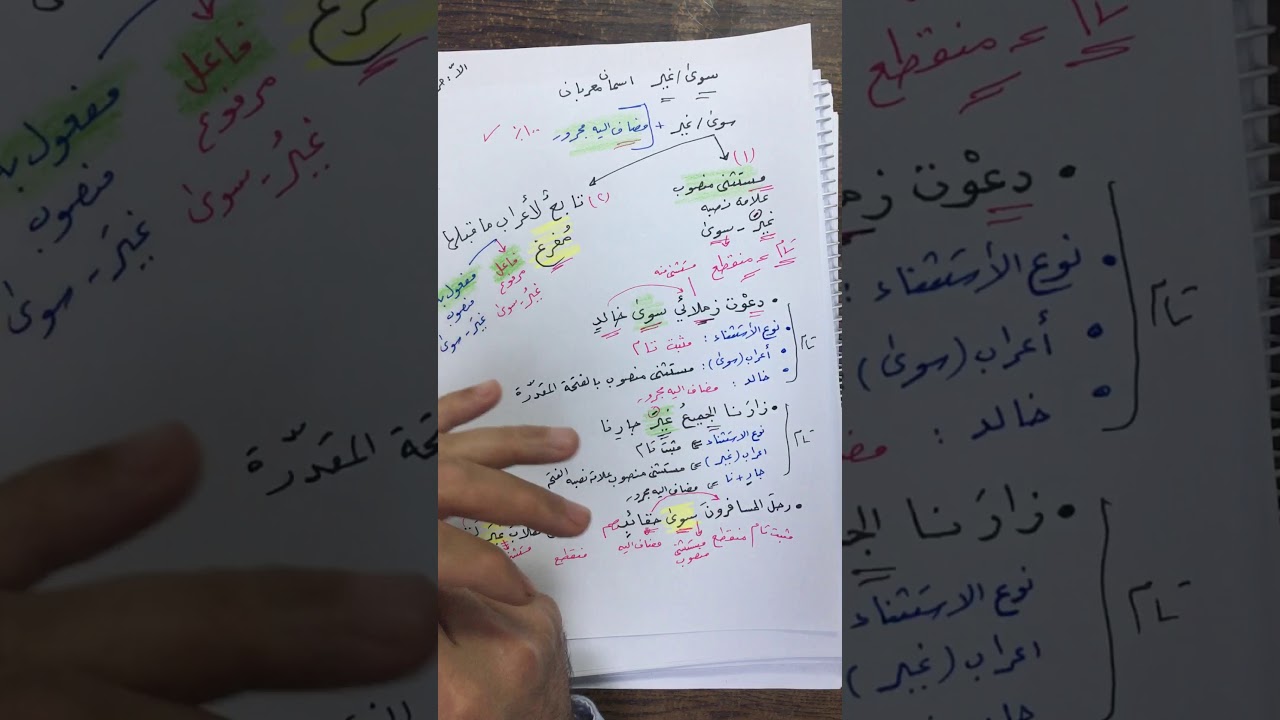 سوى / غير اسمان معربان
سوى / غير + مضاف اليه مجرور ١٠٠٪ ✓
(١)
مستثنى منصوب
علامة نصبه
غيرَ - سوى
تام = منقطع
(٢) تابعٌ لأعراب ما قبلها
مُفرغ
فاعل
مرفوع
غيرُ - سوى
مفعول به
منصوب
غيرَ - سوى
مستثنى منه
• دعوْت زملائي سوى خالدٍ
• نوع الأستثناء : مثبت تام
• أعراب (سوى) : مستثنى منصوب بالفتحة المقدّرة
• خالد : مضاف اليه مجرور
تام
• زارَنا الجميعُ غيرَ جارِنا
نوع الاستثناء = مثبت تام
اعراب (غير) = مستثنى منصوب علامة نصبه الفتح
جارِ + نا = مضاف اليه مجرور
تام
• رحلَ المسافرونَ سوى حقائبِهم
مثبت تام منقطع مستثنى منصوب مضاف اليه
غيرَ
منقطع